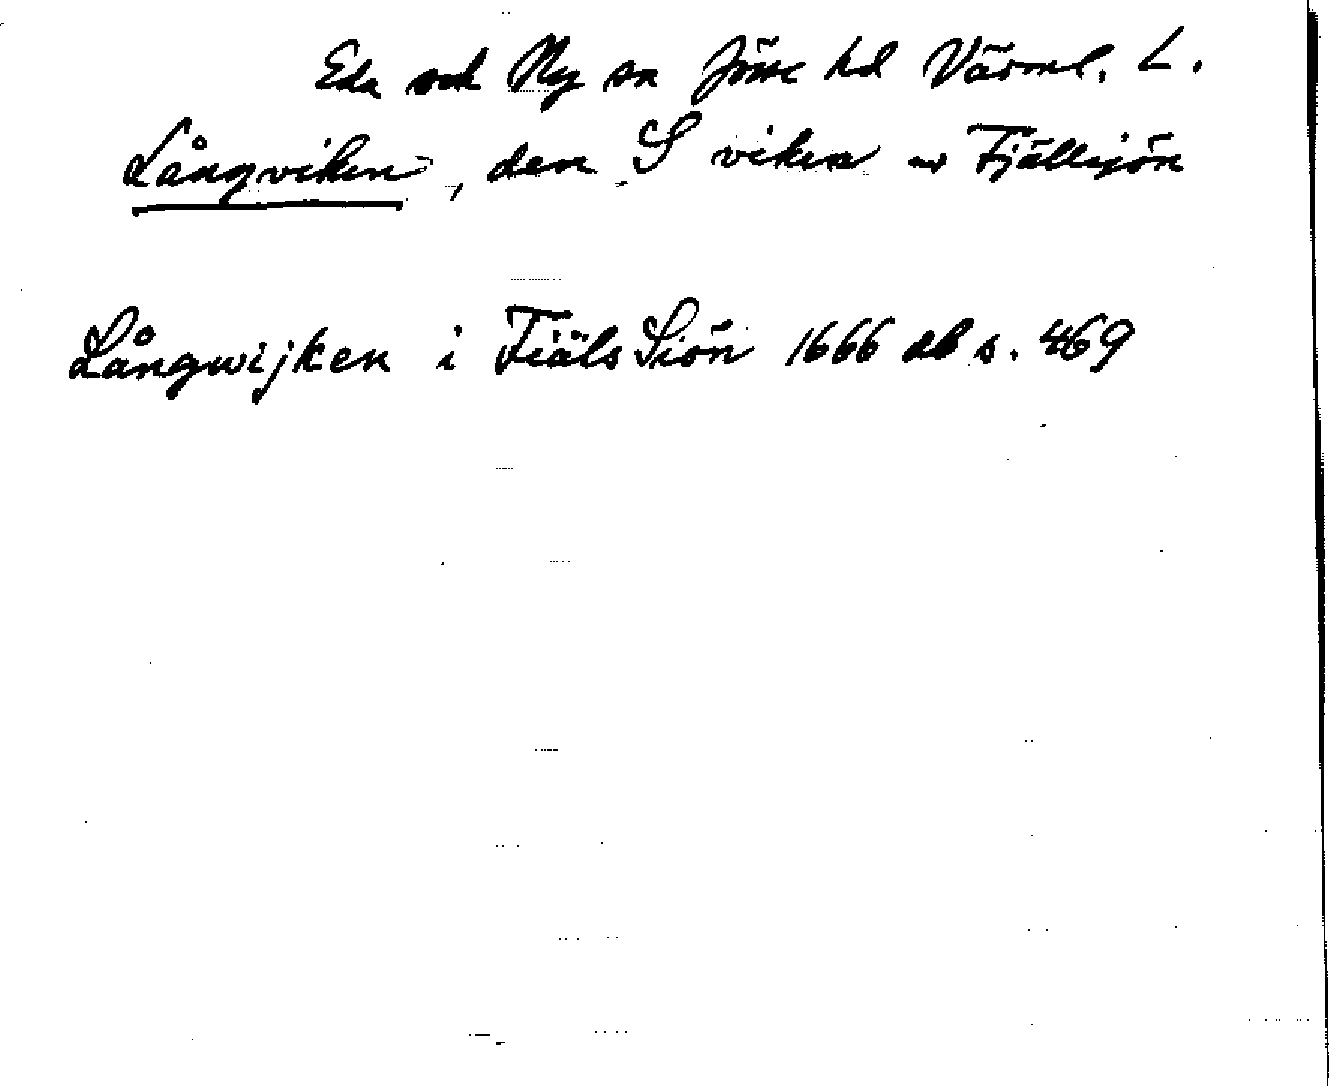 Eda och Ny sn Jösse hd Värml. L.
Långviken, den S viken av Fjällsjön
Långwijken i Fiäls Siön 1666 db s. 469